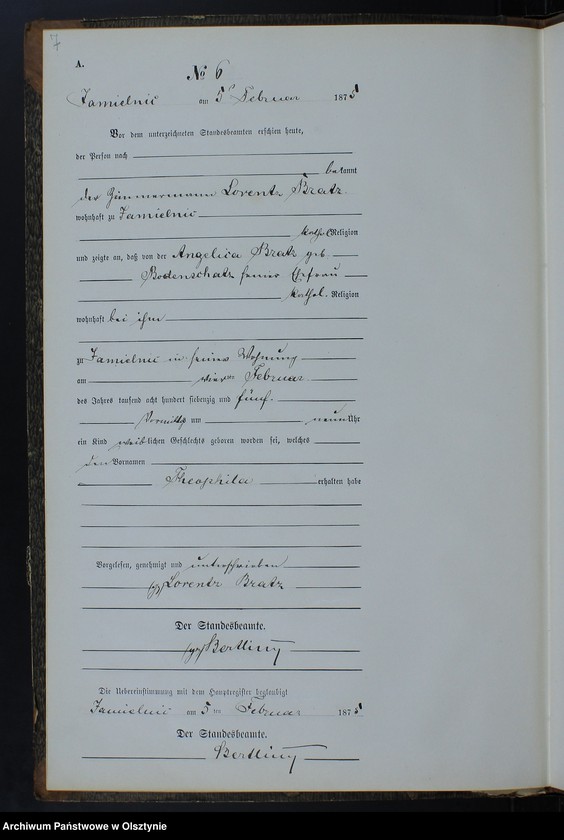 7
A.
№ 6
Jamielnic am 5ᵗ Februar 1875
Vor dem unterzeichneten Standesbeamten erschien heute,
der Person nach
bekannt
der Zimmermann Lorentz Bratz
wohnhaft zu Jamielnic
kathol. Religion
und zeigte an, daß von der Angelica Bratz geb.
Bodenschatz seiner Ehefrau
kathol. Religion
wohnhaft bei ihm
zu Jamielnic in seiner Wohnung
am vierten Februar
des Jahres tausend acht hundert siebenzig und fünf.
Vormittags um neun Uhr
ein Kind weiblichen Geschlechts geboren worden sei, welches
den Vornamen
Theophila erhalten habe
Vorgelesen, genehmigt und unterschrieben
(gz) Lorentz Bratz
Der Standesbeamte.
(gz) Bertling
Die Uebereinstimmung mit dem Hauptregister beglaubigt
Jamielnic am 5 ten Februar 1875
Der Standesbeamte.
Bertling
Archiwum Państwowe w Olsztynie